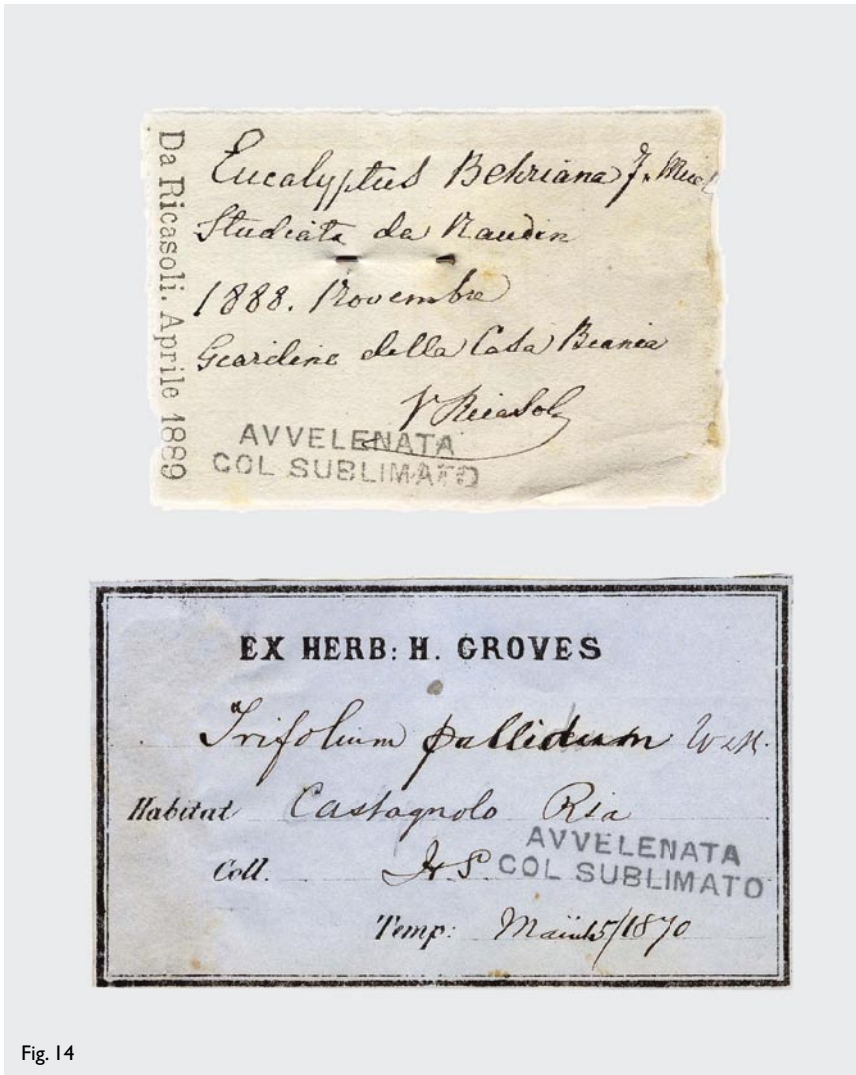 Da Ricasoli. Aprile 1889
Eucalyptus Behriana F. Muel
Studiata da Naudin
1888. Novembre
Giardino della Casa Bianca
V Ricasoli
AVVELENATA
COL SUBLIMATO
EX HERB: H. GROVES
Trifolium pallidum W&K.
Habitat Castagnolo
Coll.
AVVELENATA
COL SUBLIMATO
Temp: 15/1870
Fig. 14